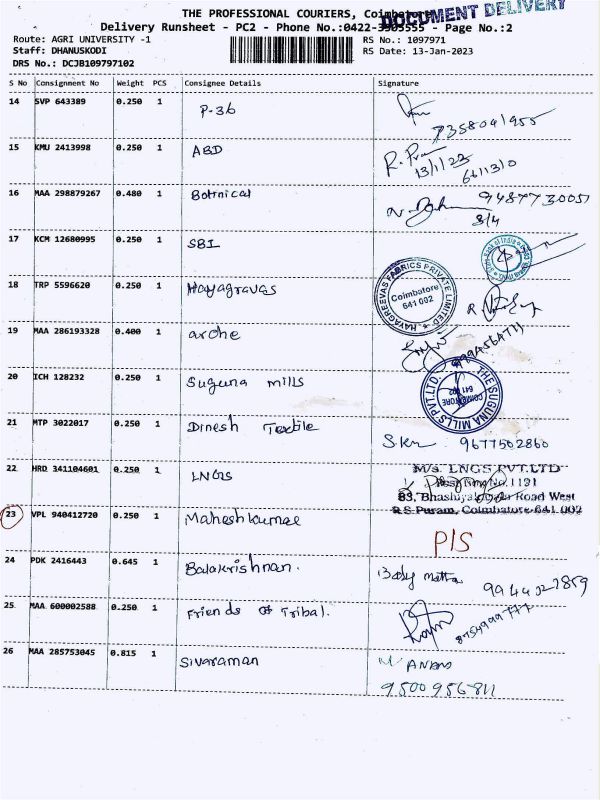 THE PROFESSIONAL COURIERS, Coimbatore
DOCUMENT DELIVERY
Delivery Runsheet - PC2 - Phone No.:0422-3505555 - Page No.:2
Route: AGRI UNIVERSITY -1
RS No.: 1097971
Staff: DHANUSKODI
RS Date: 13-Jan-2023
DRS No.: DCJB109797102
S No Consignment No Weight PCS Consignee Details Signature
14 SVP 643389 0.250 1 P-36
7358041955
15 KMU 2413998 0.250 1 ABD
13/1/23
16 MAA 298879267 0.480 1 Botnical
9487730051
3/4
17 KCM 12680995 0.250 1 SBI
18 TRP 5596620 0.250 1 Hayagravas
HAYAGREEVAS FABRICS PRIVATE LIMITED
Coimbatore
641 002
19 MAA 286193328 0.400 1 arche
20 ICH 128232 0.250 1 Suguna mills
THE SUGUNA MILLS PVT.LTD.
COIMBATORE
641 002
21 MTP 3022017 0.250 1 Dinesh Textile
9677502860
22 HRD 341104601 0.250 1 LNGS
M/s. LNGS PVT.LTD
No.1191
83, Road West
R.S Puram, Coimbatore-641 002
23 VPL 940412720 0.250 1 Maheshkumar
P/S
24 PDK 2416443 0.645 1 Balakrishnan.
25 MAA 600002588 0.250 1 Friends of Tribal.
8754999777
26 MAA 285753045 0.815 1 Sivaraman
9500956811